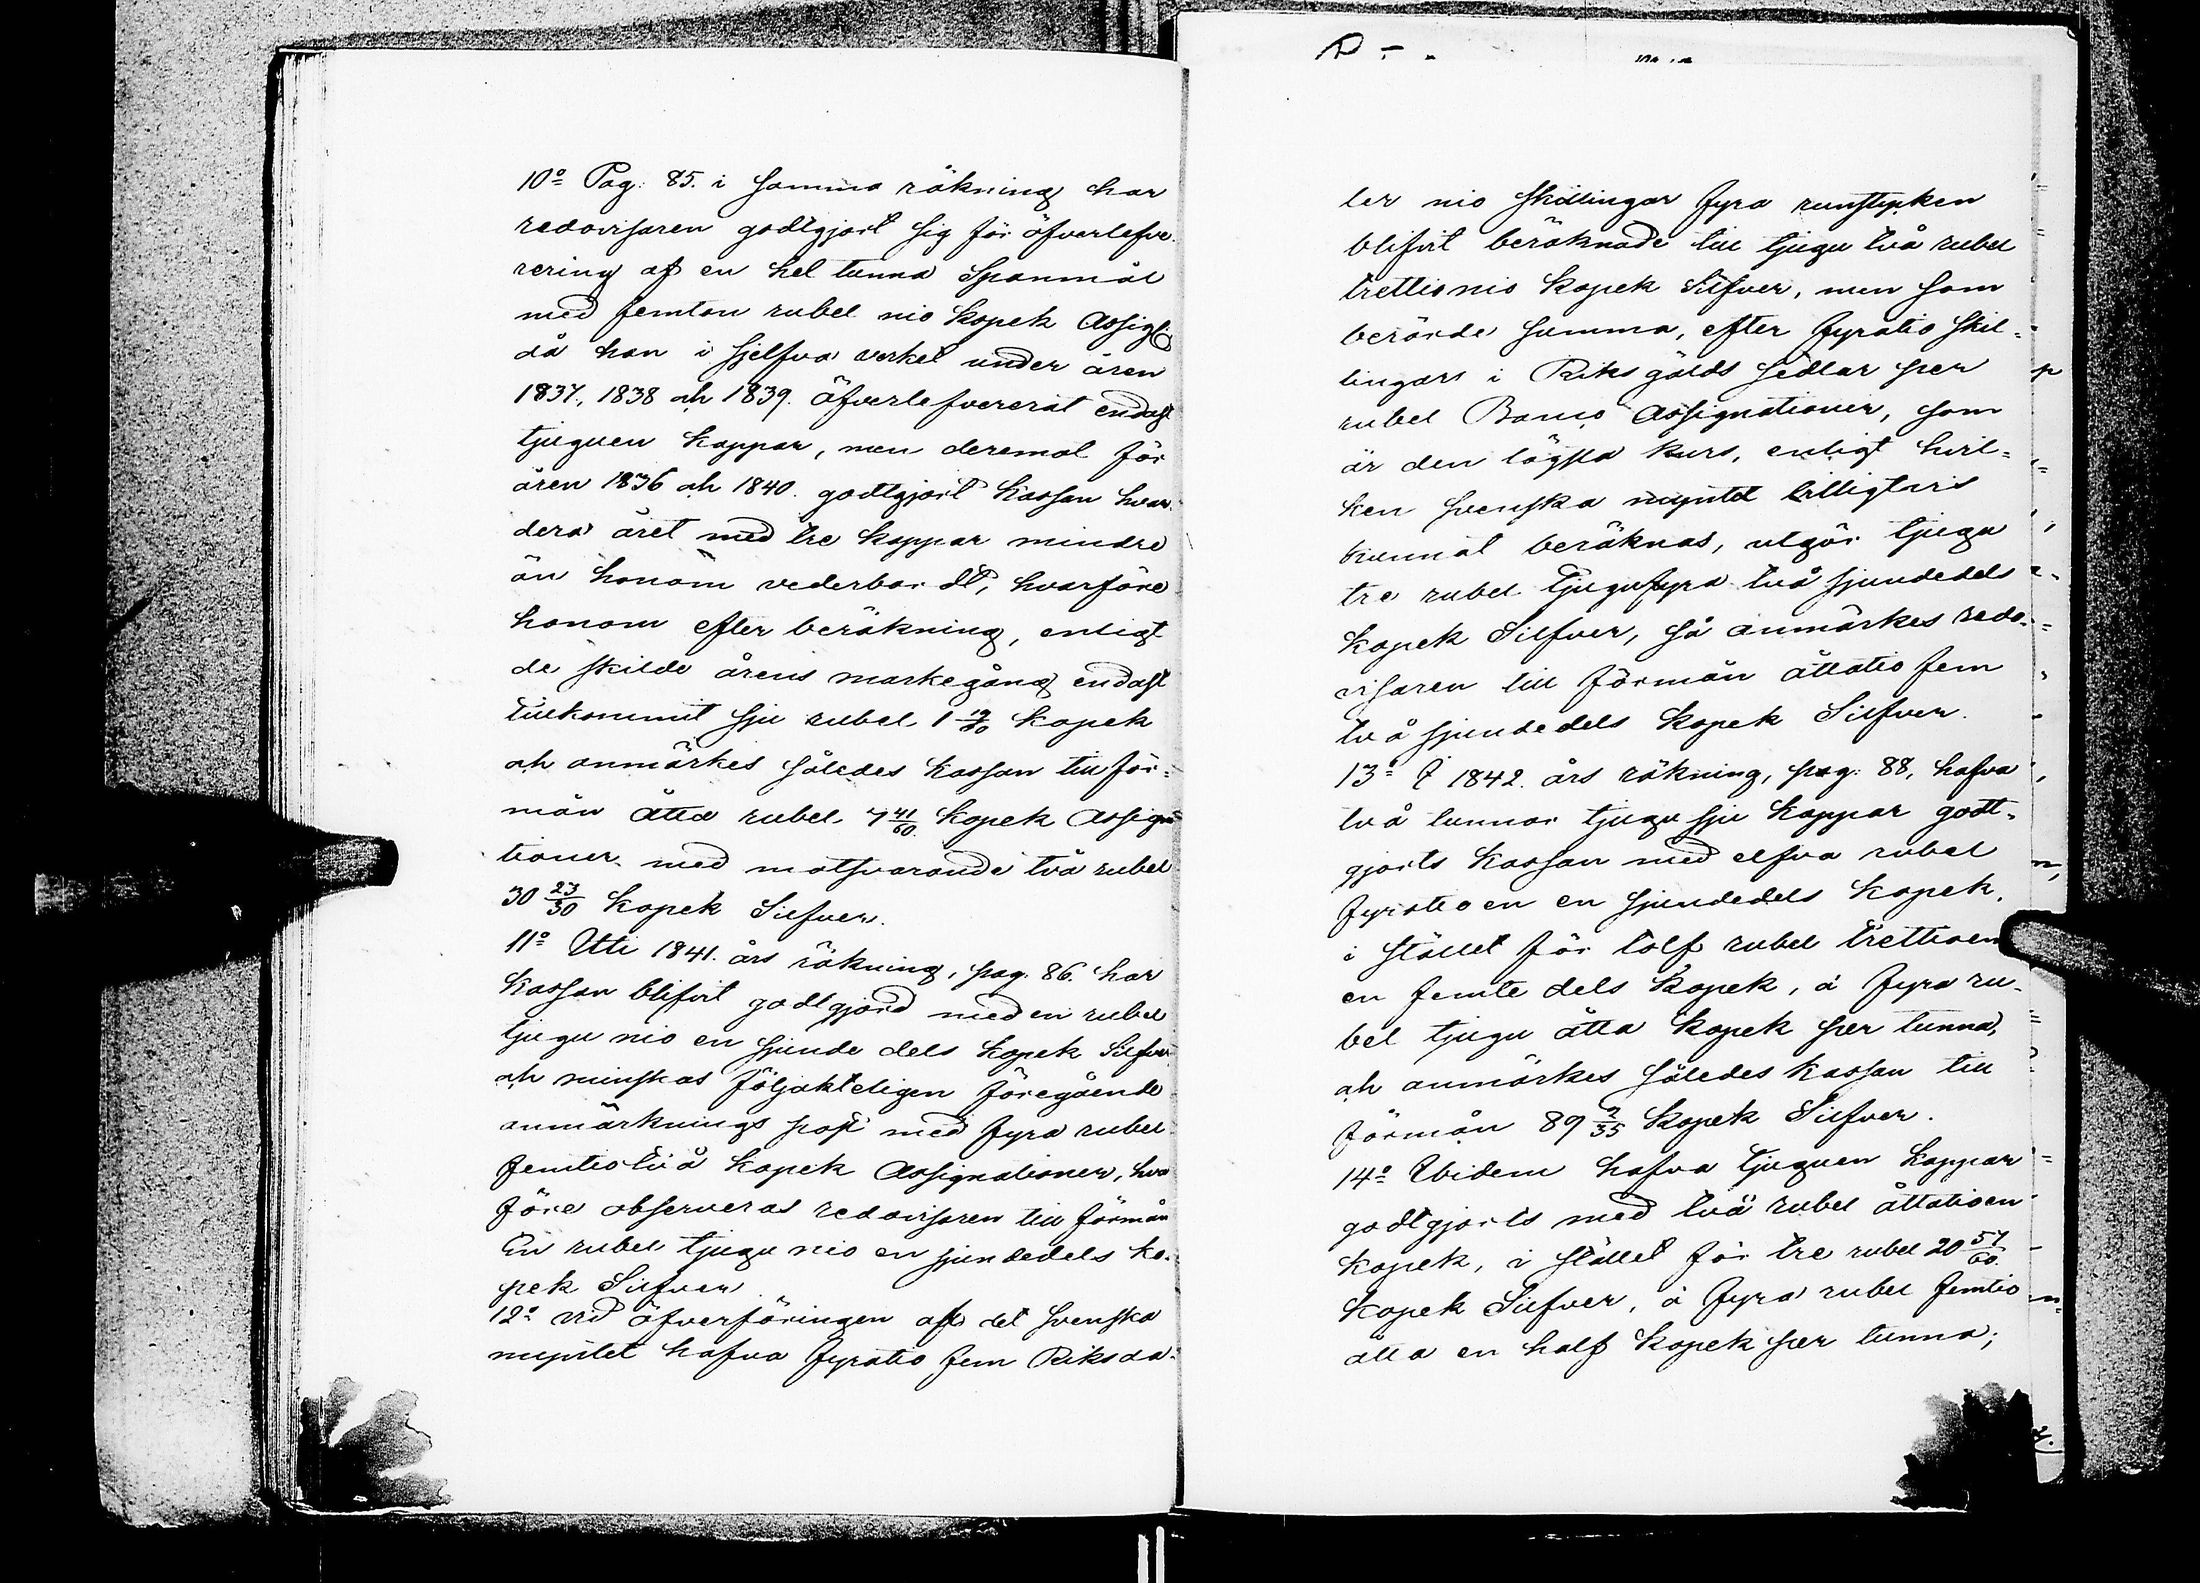 10º Pag: 85. i samma räkning har
redovisaren godtgjort sig för öfverlefve-
rering af en hel tunna Spanmål
med femton rubel nio kopek Assig:
då han i sjelfva verket under åren
1837, 1838 och 1839. öfverlefvererat endast
tjuguen kappar, men deremot för
åren 1836 och 1840. godtgjort Kassan hvar-
dera året med tre kappar mindre
än honom vederbordt, hvarföre
honom efter beräkning, enligt
de skilde årens markegång endast
tillkommit sju rubel 1 19/20 kopek
och anmärkes således kassan till för-
mån åtta rubel 7 41/60 kopek Assigna
tioner med motsvarande två rubel
30 23/30 kopek Silfver.
11º Uti 1841. års räkning, pag. 86. har
Kassan blifvit godtgjord med en rubel
tjugu nio en sjunde dels kopek Silfver
och minskas följakteligen föregående
anmärknings post med fyra rubel
femtiotvå kopek Assignationer, hvar
före observeras redovisaren till förmån
En rubel tjugu nio en sjundedels ko-
pek Silfver.
12º vid öfverföringen af det svenska
myntet hafva fyratio fem Riksda-
ler nio skillingar fyra runstycken
blifvit beräknade till tjugu två rubel
trettionio kopek Silfver, men som
berörde summa, efter fyratio skil-
lingar i Riksgälds sedlar per
rubel Banco Assignationer, som
är den lägsta kurs, enligt hvil-
ken svenska myntet billigtvis
kunnat beräknas, utgör tjugu
tre rubel tjugufyra två sjundedels
kopek Silfver, så anmärkes redo-
visaren till förmån åttatio fem
två sjundedels kopek Silfver.
13º I 1842. års räkning, pag: 88, hafva
två tunnor tjugu sju kappar godt-
gjorts kassan med elfva rubel
fyratio en en sjundedels kopek,
i stället för tolf rubel trettioen
en femte dels kopek, à fyra ru-
bel tjugu åtta kopek per tunna,
och anmärkes således kassan till
förmån 89 2/35 kopek Silfver.
14º Ibidem hafva tjuguen kappar
godtgjorts med två rubel åttatioen
kopek, i stället för tre rubel 20 57/60
kopek Silfver, à fyra rubel femtio
åtta en half kopek per tunna;